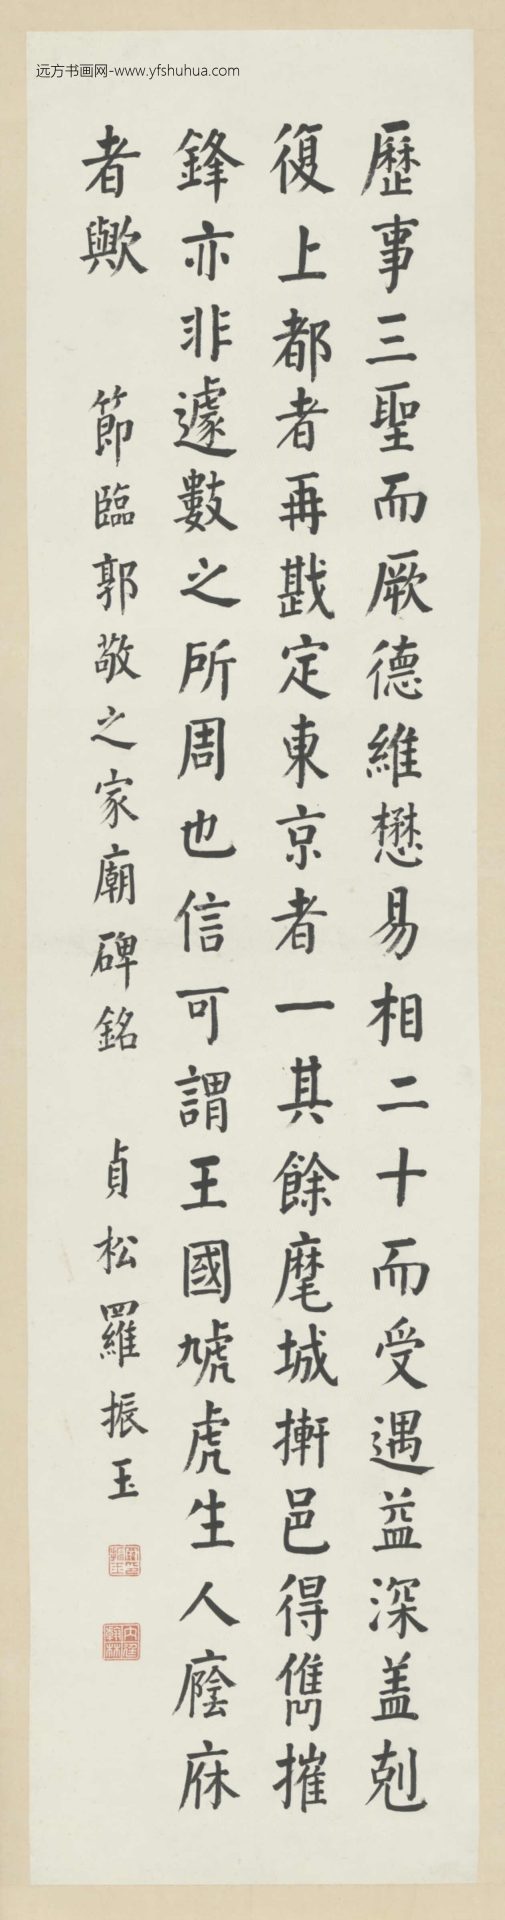 远方书画网-www.yfshuhua.com
歷事三聖而厥德維懋易相二十而受遇益深盖剋
復上都者再戡定東京者一其餘麾城摲邑得儁摧
鋒亦非遽數之所周也信可謂王國虓虎生人廕庥
者歟
節臨郭敬之家廟碑銘 貞松羅振玉